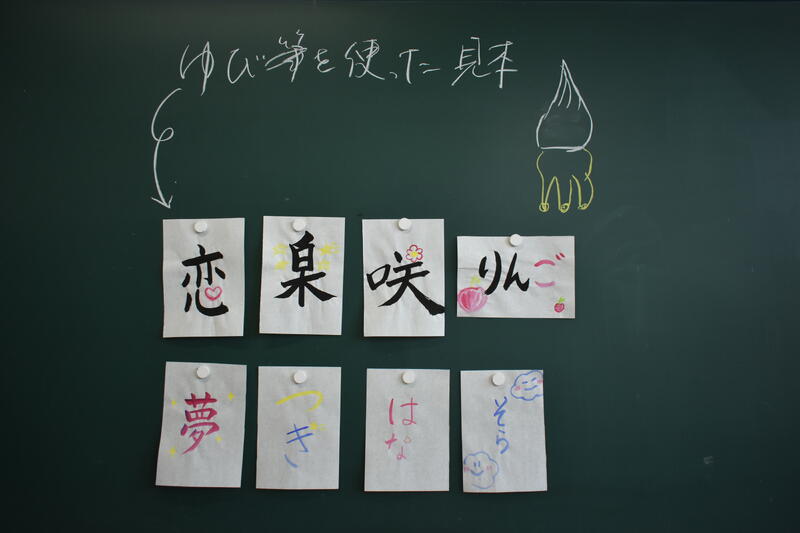 ゆび筆を使った見本
恋
楽
咲
りんご
夢
つき
はな
そら